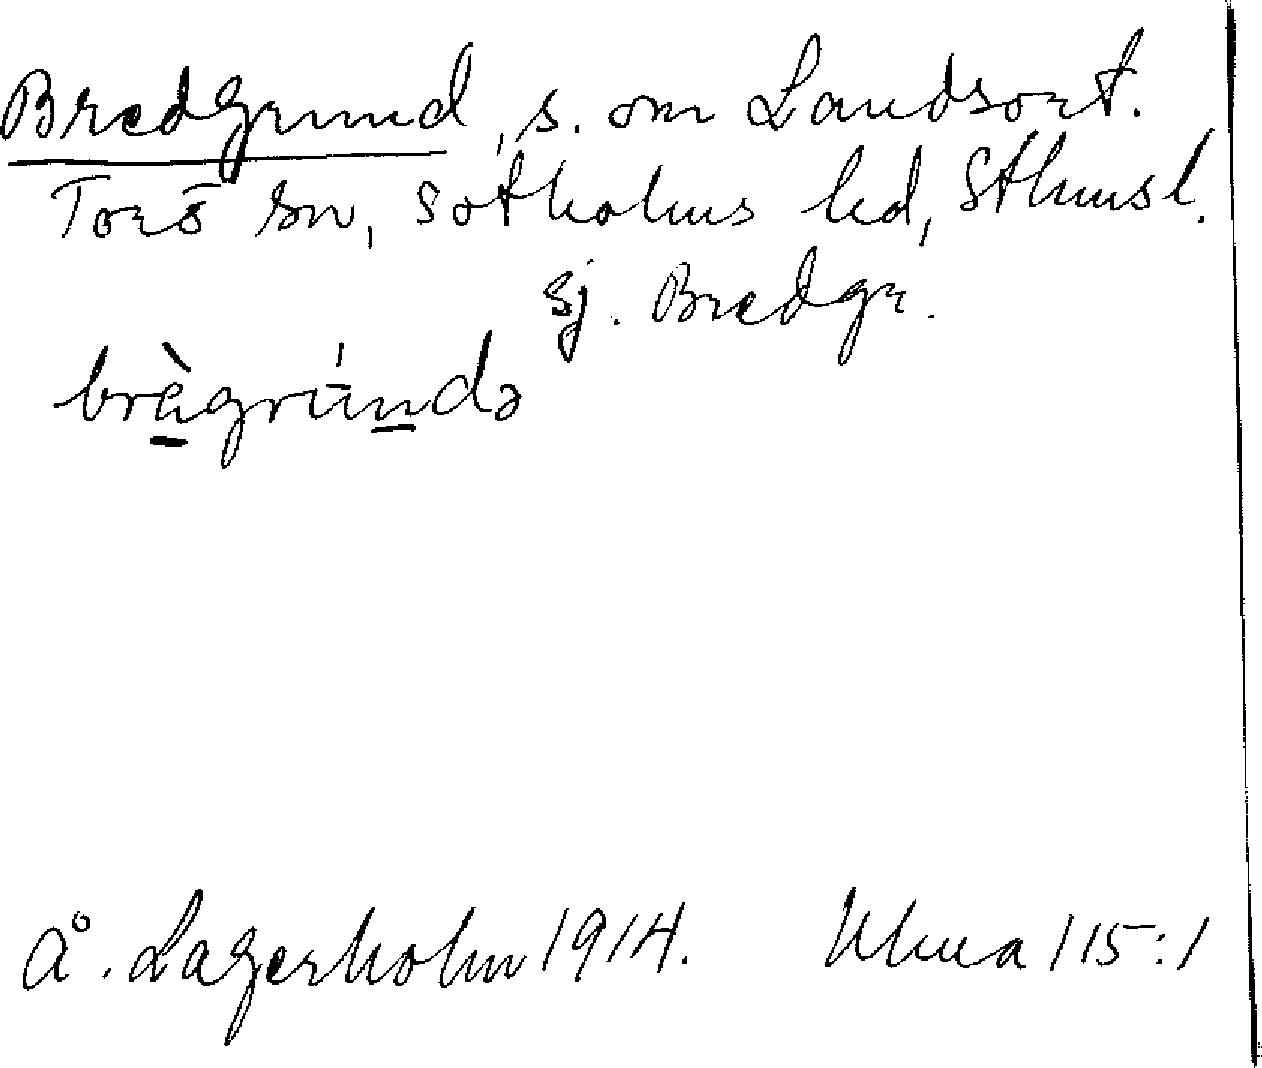 Bredgrund, s. om Landsort.
Torö sn, Sotholms hd, Sthmsl.
sj. Bredgr.
brègrúndə
Å. Lagerholm 1914. Ulma 115:1